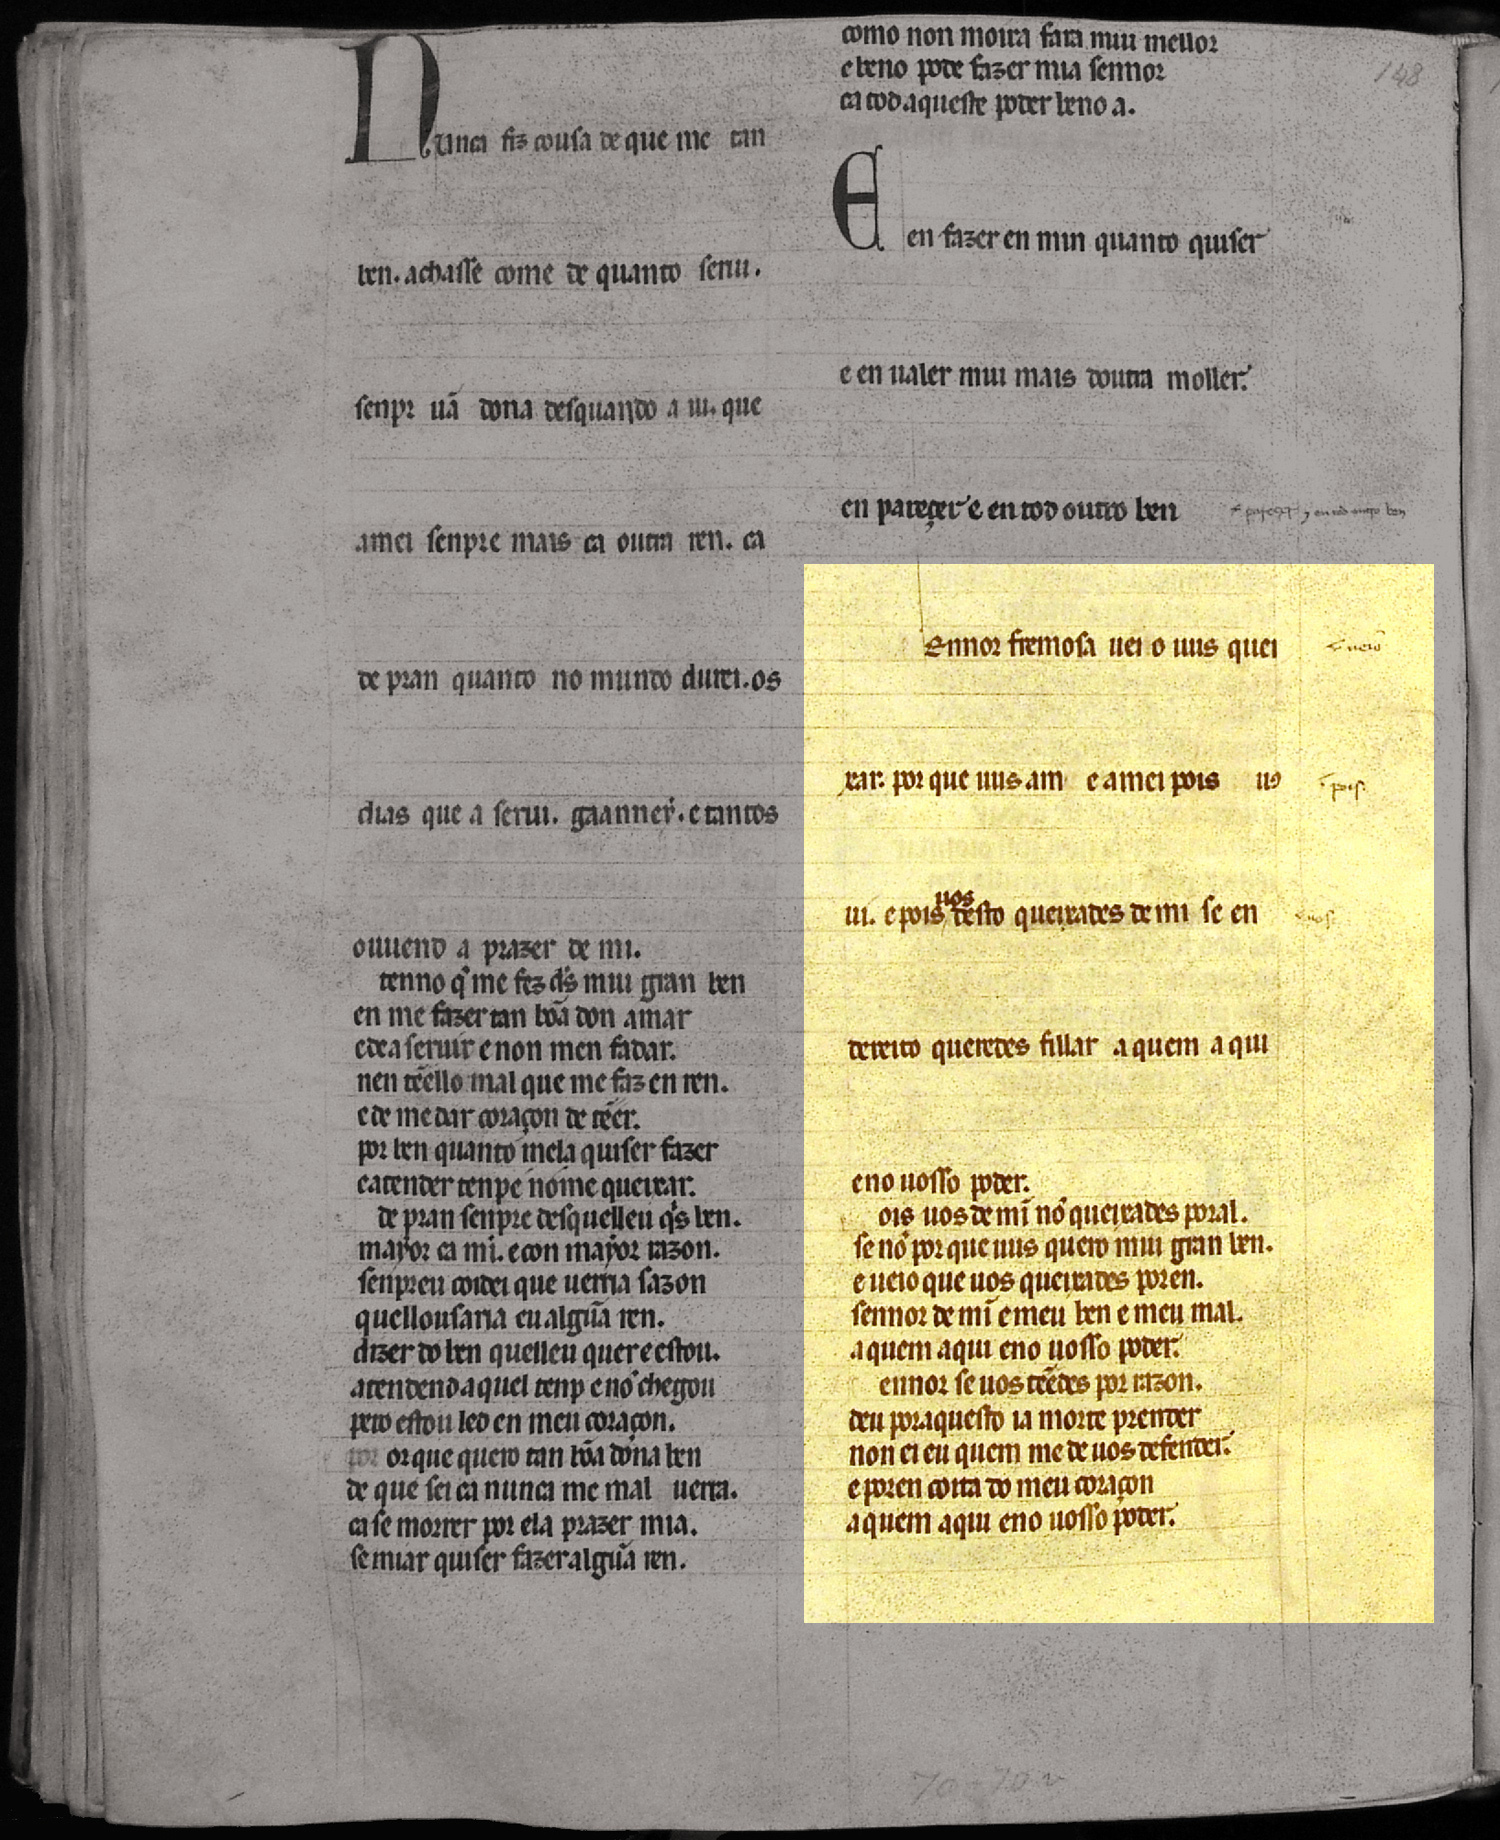 Nunca fiz cousa de que me tan
ben. achasse come de quanto serui.
senpr uã dona desquando a ui. que
amei senpre mais ca outra ren. ca
de pran quanto no mundo durei. os
dias que a serui. gaannei. e tantos
ouuend a prazer de mi.
tenno q̇ me fez d̃s mui gran ben
en me fazer tan bõa don amar
e dea seruir e non men fadar.
nen tẽello mal que me faz en ren.
e de me dar coraçon de tẽer.
por ben quanto mela quiser fazer
e atender tenpe nõme queixar.
de pran senpre desquelleu q̇s ben.
mayor ca mi. e con mayor razon.
senpreu coidei que uerria sazon
quellousaria eu algũa ren.
dizer do ben quelleu quer e estou.
atendend aquel tenp e nõ chegou
pero estou led en meu coraçon.
por orque quero tan bõa dona ben
de que sei ca nunca me mal uerra.
ca se morrer por ela prazer mia.
se miar quiser fazer algũa ren.
como non moira fara mui mellor
e beno pode fazer mia sennor
ca tod aqueste poder beno a.
E en fazer en min quanto quiser
e en ualer mui mais doutra moller.
en pareçer e en tod outro ben
parecer y en tod outro ben
Ennor fremosa uei o uus quei
ueio
xar. por que uus am e amei pois uꝯ
pois
ui. e pois uos desto queixades de mi se en
uos
dereito queredes fillar a quem aqui
eno uosso poder.
ois uos de mĩ nõ queixades poral.
se nõ por que uus quero mui gran ben.
e ueio que uos queixades poren.
sennor de mĩ e meu ben e meu mal.
aquem aqui eno uosso poder.
ennor se uos tẽedes por razon.
deu poraquesto ia morte prender
non ei eu quem me de uos defender.
e poren coita do meu coraçon
aquem aqui eno uosso poder.
148
70-70v